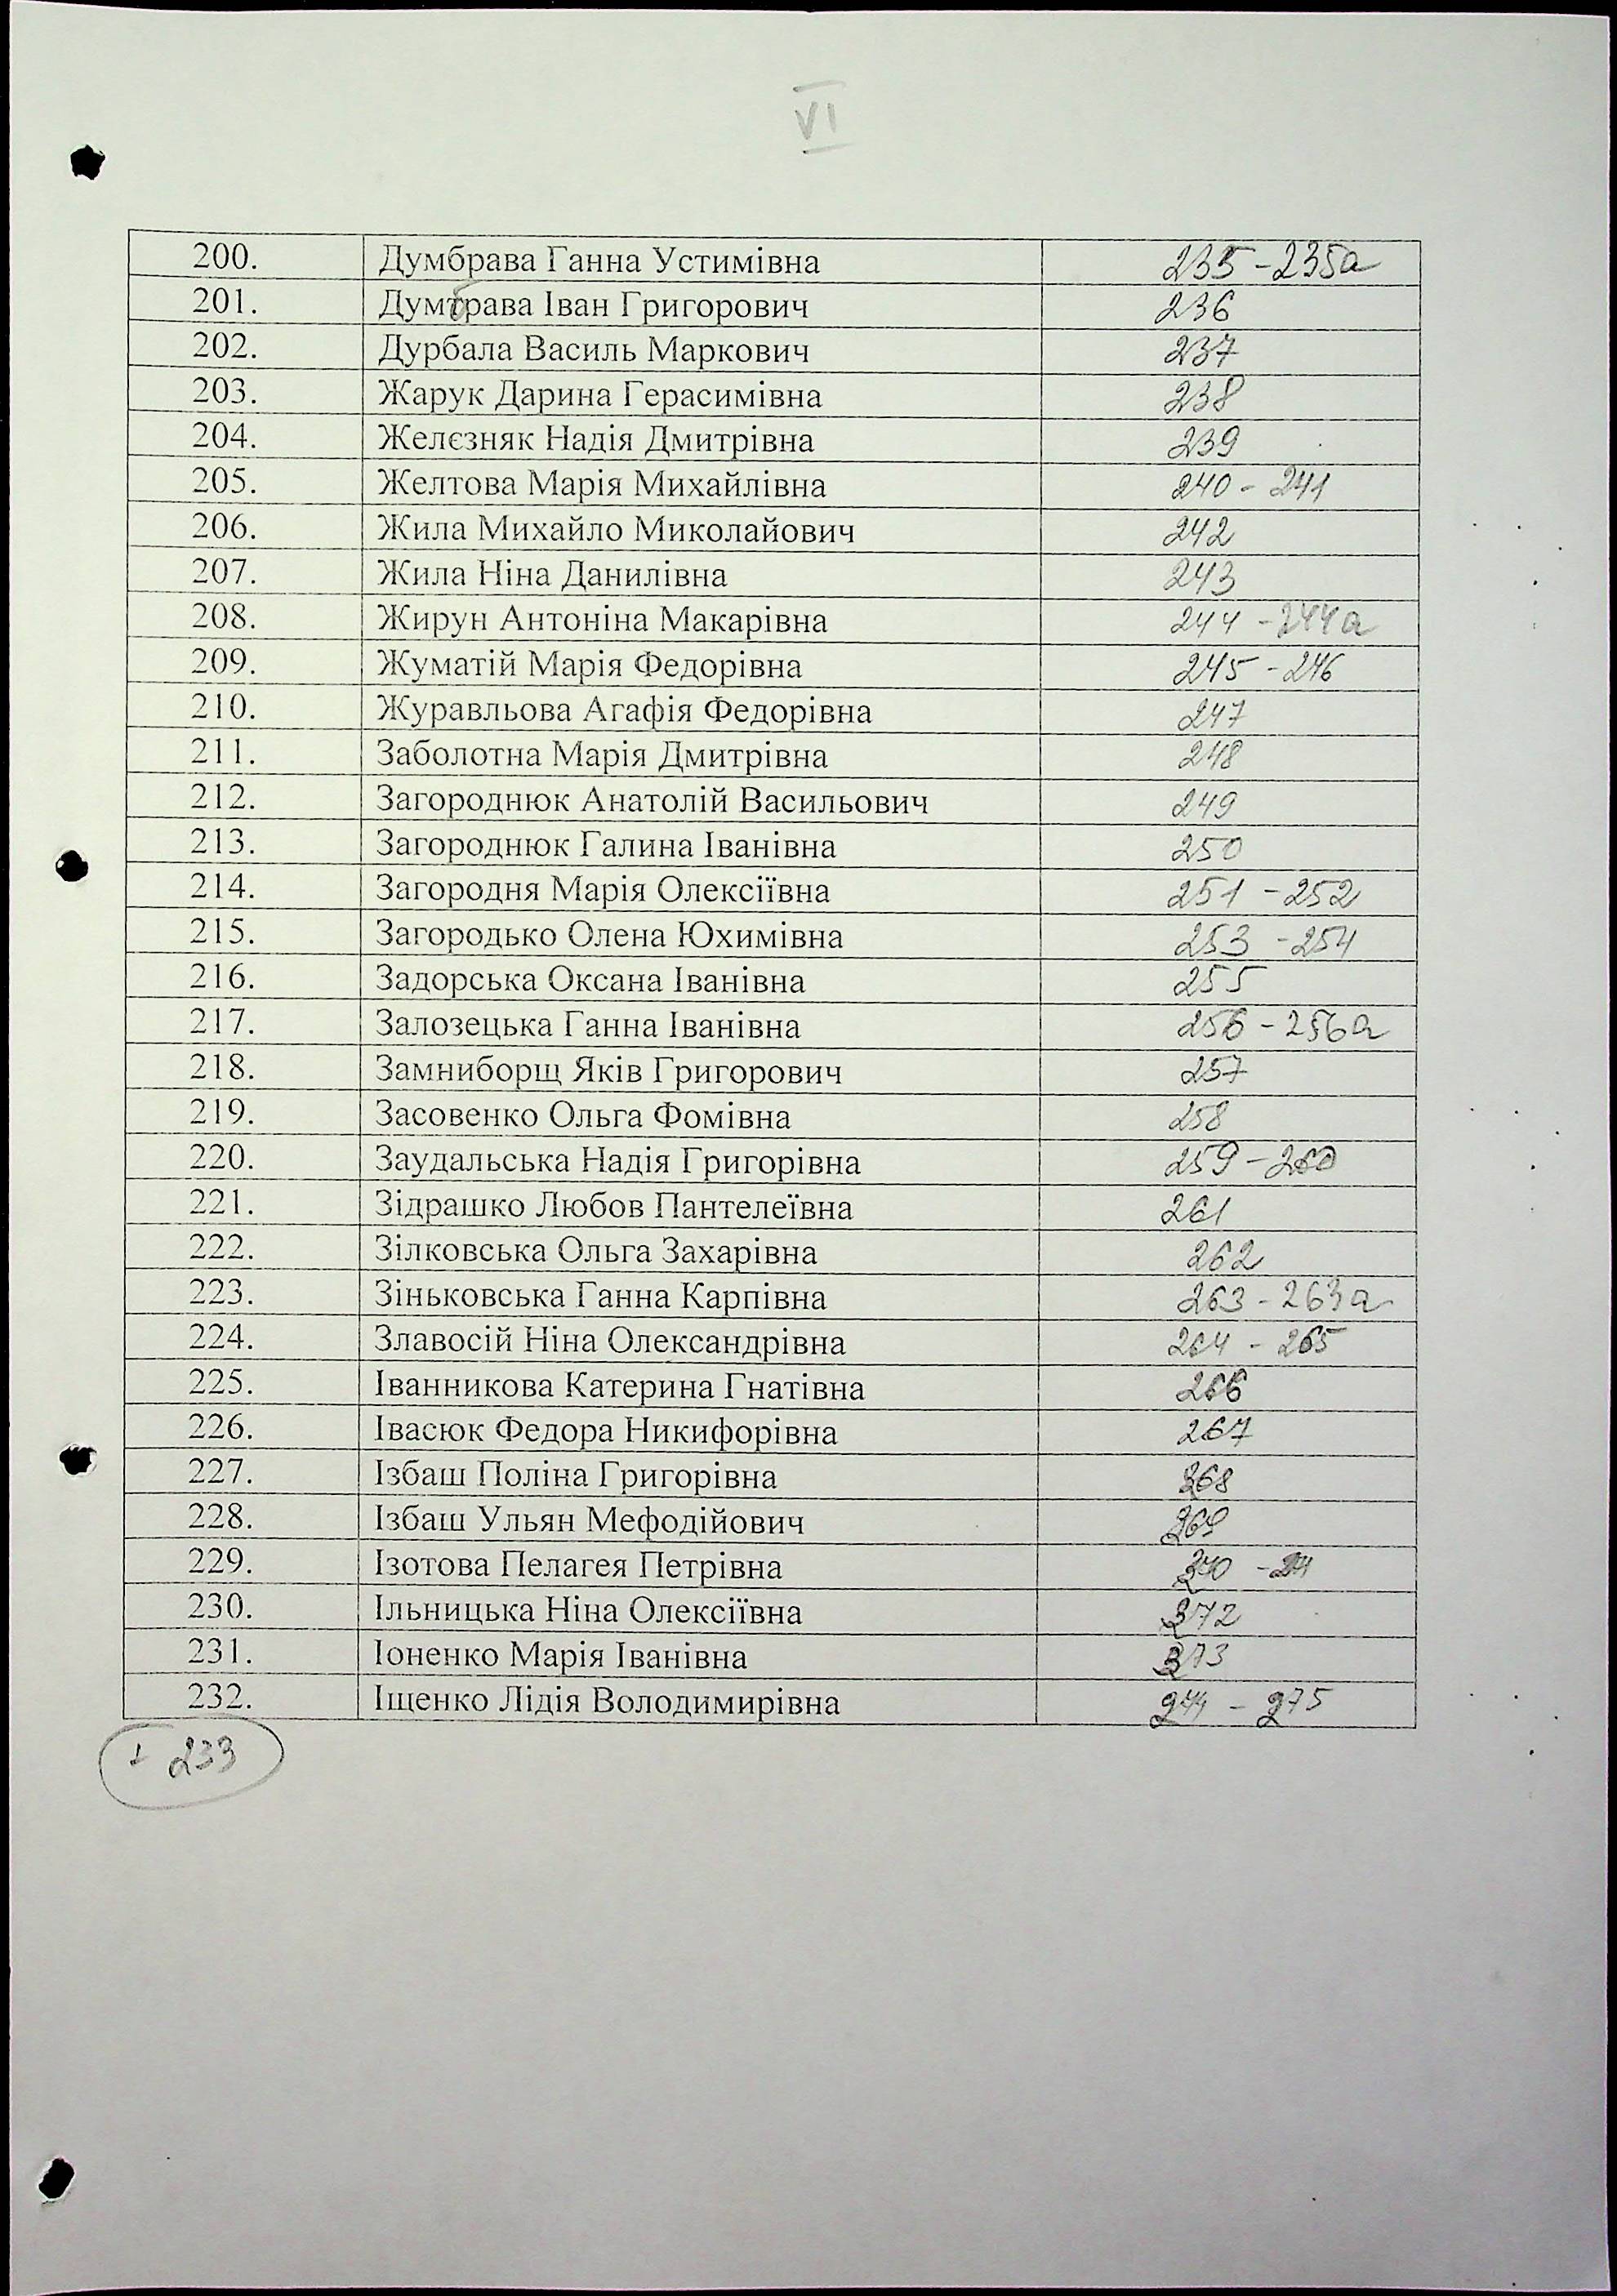 VI
200. Думбрава Ганна Устимівна 235-235а
201. Думбрава Іван Григорович 236
202. Дурбала Василь Маркович 237
203. Жарук Дарина Герасимівна 238
204. Желєзняк Надія Дмитрівна 239
205. Желтова Марія Михайлівна 240-241
206. Жила Михайло Миколайович 242
207. Жила Ніна Данилівна 243
208. Жирун Антоніна Макарівна 244-244а
209. Жуматій Марія Федорівна 245-246
210. Журавльова Агафія Федорівна 247
211. Заболотна Марія Дмитрівна 248
212. Загороднюк Анатолій Васильович 249
213. Загороднюк Галина Іванівна 250
214. Загородня Марія Олексіївна 251-252
215. Загородько Олена Юхимівна 253-254
216. Задорська Оксана Іванівна 255
217. Залозецька Ганна Іванівна 256-256а
218. Замниборщ Яків Григорович 257
219. Засовенко Ольга Фомівна 258
220. Заудальська Надія Григорівна 259-260
221. Зідрашко Любов Пантелеївна 261
222. Зілковська Ольга Захарівна 262
223. Зіньковська Ганна Карпівна 263-263а
224. Злавосій Ніна Олександрівна 264-265
225. Іванникова Катерина Гнатівна 266
226. Івасюк Федора Никифорівна 267
227. Ізбаш Поліна Григорівна 268
228. Ізбаш Ульян Мефодійович 269
229. Ізотова Пелагея Петрівна 270-271
230. Ільницька Ніна Олексіївна 272
231. Іоненко Марія Іванівна 273
232. Іщенко Лідія Володимирівна 274-275
233